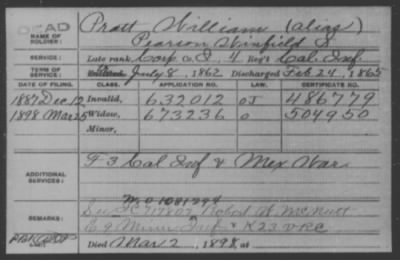 DEAD
NAME OF SOLDIER: Pratt William (alias)
Pearson Winfield S
SERVICE: Late rank, Corp Co. I, 4 Reg't Cal. Inf.
TERM OF SERVICE: Enlisted July 8, 1862 Discharged Feb 24, 1865
DATE OF FILING. CLASS. APPLICATION NO. LAW. CERTIFICATE NO.
1887 Dec. 12 Invalid, 632012 486779
1898 Mar 25 Widow, 673236 504950
Minor,
ADDITIONAL SERVICES: F 3 Cal Inf & Mex War
REMARKS: Robert H McNutt
E 9 Minn Inf & K 23 V.R.C.
Died Mar 2, 1898, at